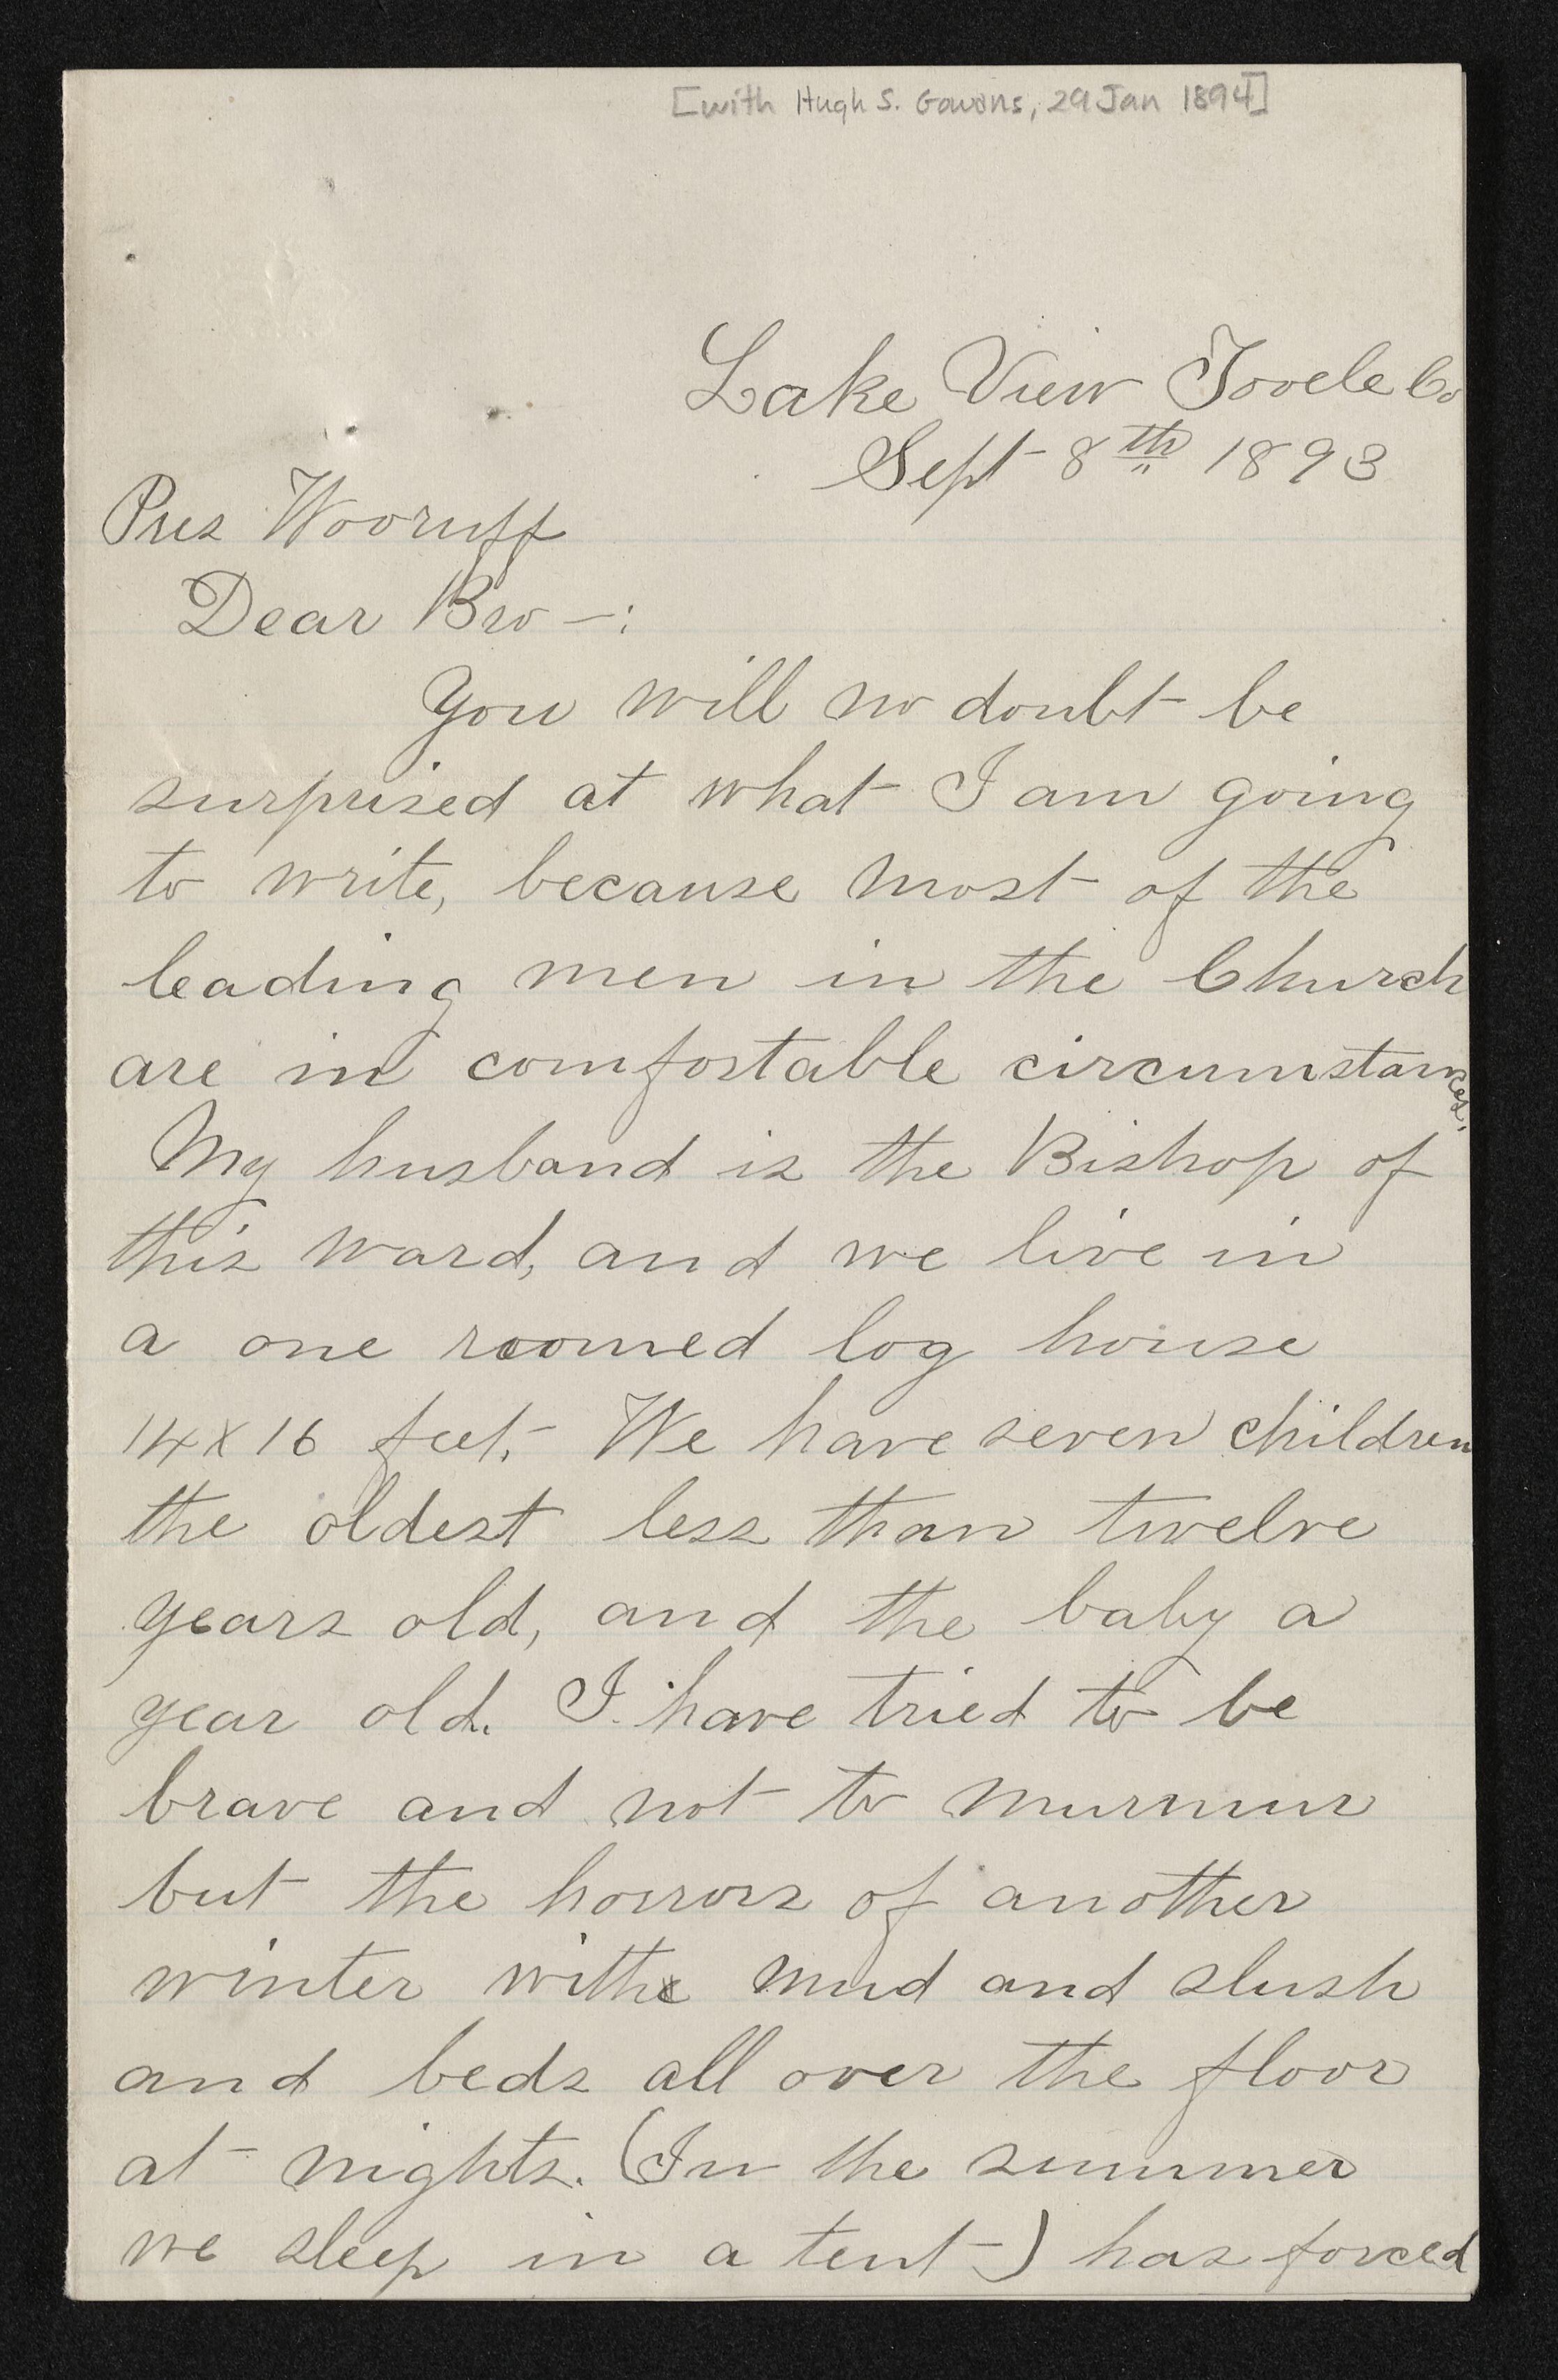 [with Hugh S. Gowans, 29 Jan 1894]
Lake View Tooele Co
Sept 8th 1893
Pres Wooruff
Dear Bro —:
You will no doubt be
surprised at what I am going
to write, because most of the
leading men in the Church
are in comfortable circumstances.
My husband is the Bishop of
this ward, and we live in
a one roomed log house
14x16 feet. We have seven children
the oldest less than twelve
years old, and the baby a
year old. I have tried to be
brave and not to murmur
but the horrors of another
winter with mud and slush
and beds all over the floor
at nights. (In the summer
we sleep in a tent) has forced